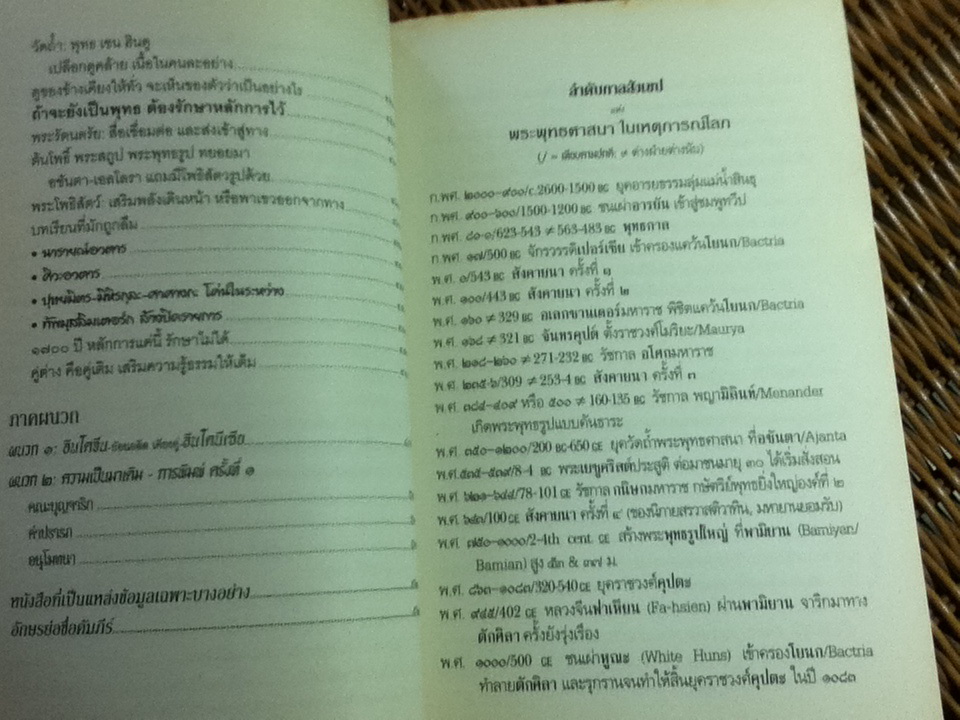 วัดถ้ำ: พุทธ เชน ฮินดู
เปลือกดูคล้าย เนื้อในคนละอย่าง
ดูของข้างเคียงให้ทั่ว จะเห็นของตัวว่าเป็นอย่างไร
ถ้าจะยังเป็นพุทธ ต้องรักษาหลักการไว้
พระรัตนตรัย: สื่อเชื่อมต่อ และส่งเข้าสู่ทาง
ต้นโพธิ์ พระสถูป พระพุทธรูป ทยอยมา
อชันตา-เอลโลรา แถมมีโพธิสัตวรูปด้วย
พระโพธิสัตว์: เสริมพลังเดินหน้า หรือพาเขวออกจากทาง
บทเรียนที่มักถูกลืม
• นารายณ์อวตาร
• ศิวะอวตาร
• ปุษยมิตร-มิหิรกุละ-ศาศางกะ โค่นในระหว่าง
• ทัพมุสลิมเตอร์ก ล้างปิดรายการ
๑๗๐๐ ปี หลักการแค่นี้ รักษาไม่ได้
คู่ต่าง คือคู่เติม เสริมความรู้ธรรมให้เต็ม
ภาคผนวก
ผนวก ๑: อินโดจีน- -อินโดนีเซีย
ผนวก ๒: ความเป็นมาเดิม - การพิมพ์ ครั้งที่ ๑
คณะบุญจาริก
คำปรารภ
อนุโมทนา
หนังสือที่เป็นแหล่งข้อมูลเฉพาะบางอย่าง
อักษรย่อชื่อคัมภีร์
ลำดับกาลสังเขป
แห่ง
พระพุทธศาสนา ในเหตุการณ์โลก
(/ = เทียบตามปกติ; ≠ ต่างฝ่ายต่างนับ)
ก.พศ. ๒๐๐๐-๙๐๐/c.2600-1500 BC ยุคอารยธรรมลุ่มแม่น้ำสินธุ
ก.พศ. ๙๐๐-๖๐๐/1500-1200 BC ชนเผ่าอารยัน เข้าสู่ชมพูทวีป
ก.พศ. ๘๐-๑/623-543 ≠ 563-483 BC พุทธกาล
ก.พศ. ๔๓/500 BC จักรวรรดิเปอร์เซีย เข้าครองแคว้นโยนก/Bactria
พ.ศ. ๑/543 BC สังคายนา ครั้งที่ ๑
พ.ศ. ๑๐๐/443 BC สังคายนา ครั้งที่ ๒
พ.ศ. ๑๖๐ ≠ 329 BC อเลกซานเดอร์มหาราช พิชิตแคว้นโยนก/Bactria
พ.ศ. ๑๖๘ ≠ 321 BC จันทรคุปต์ ตั้งราชวงศ์โมริยะ/Maurya
พ.ศ. ๒๑๘-๒๖๐ ≠ 271-232 BC รัชกาล อโศกมหาราช
พ.ศ. ๒๓๕-๖/309 ≠ 253-4 BC สังคายนา ครั้งที่ ๓
พ.ศ. ๓๘๔-๔๐๙ หรือ ๕๐๐ ≠ 160-135 BC รัชกาล พญามิลินท์/Menander
เกิดพระพุทธรูปแบบคันธาระ
พ.ศ. ๓๕๐-๑๒๐๐/200 BC-650 CE ยุควัดถ้ำพระพุทธศาสนา ที่อชันตา/Ajanta
พ.ศ. ๕๓๕-๕๓๙/8-4 BC พระเยซูคริสต์ประสูติ ต่อมาชนมายุ ๓๐ ได้เริ่มสั่งสอน
พ.ศ. ๖๒๑-๖๔๔/78-101 CE รัชกาล กนิษกมหาราช กษัตริย์พุทธยิ่งใหญ่องค์ที่ ๒
พ.ศ. ๖๔๓/100 CE สังคายนา ครั้งที่ ๔ (ของนิกายสรวาสติวาทิน, มหายานยอมรับ)
พ.ศ. ๗๕๐-๑๐๐๐/2-4th cent. CE สร้างพระพุทธรูปใหญ่ ที่พามิยาน (Bamiyan/
Bamian) สูง ๕๓ & ๓๗ ม.
พ.ศ. ๘๖๓-๑๐๘๓/320-540 CE ยุคราชวงศ์คุปตะ
พ.ศ. ๙๔๕/402 CE หลวงจีนฟาเหียน (Fa-hsien) ผ่านพามิยาน จาริกมาทาง
ตักศิลา ครั้งยังรุ่งเรือง
พ.ศ. ๑๐๐๐/500 CE ชนเผ่าหูณะ (White Huns) เข้าครองโยนก/Bactria
ทำลายตักศิลา และรุกรานจนทำให้สิ้นยุคราชวงศ์คุปตะ ในปี ๑๐๘๓